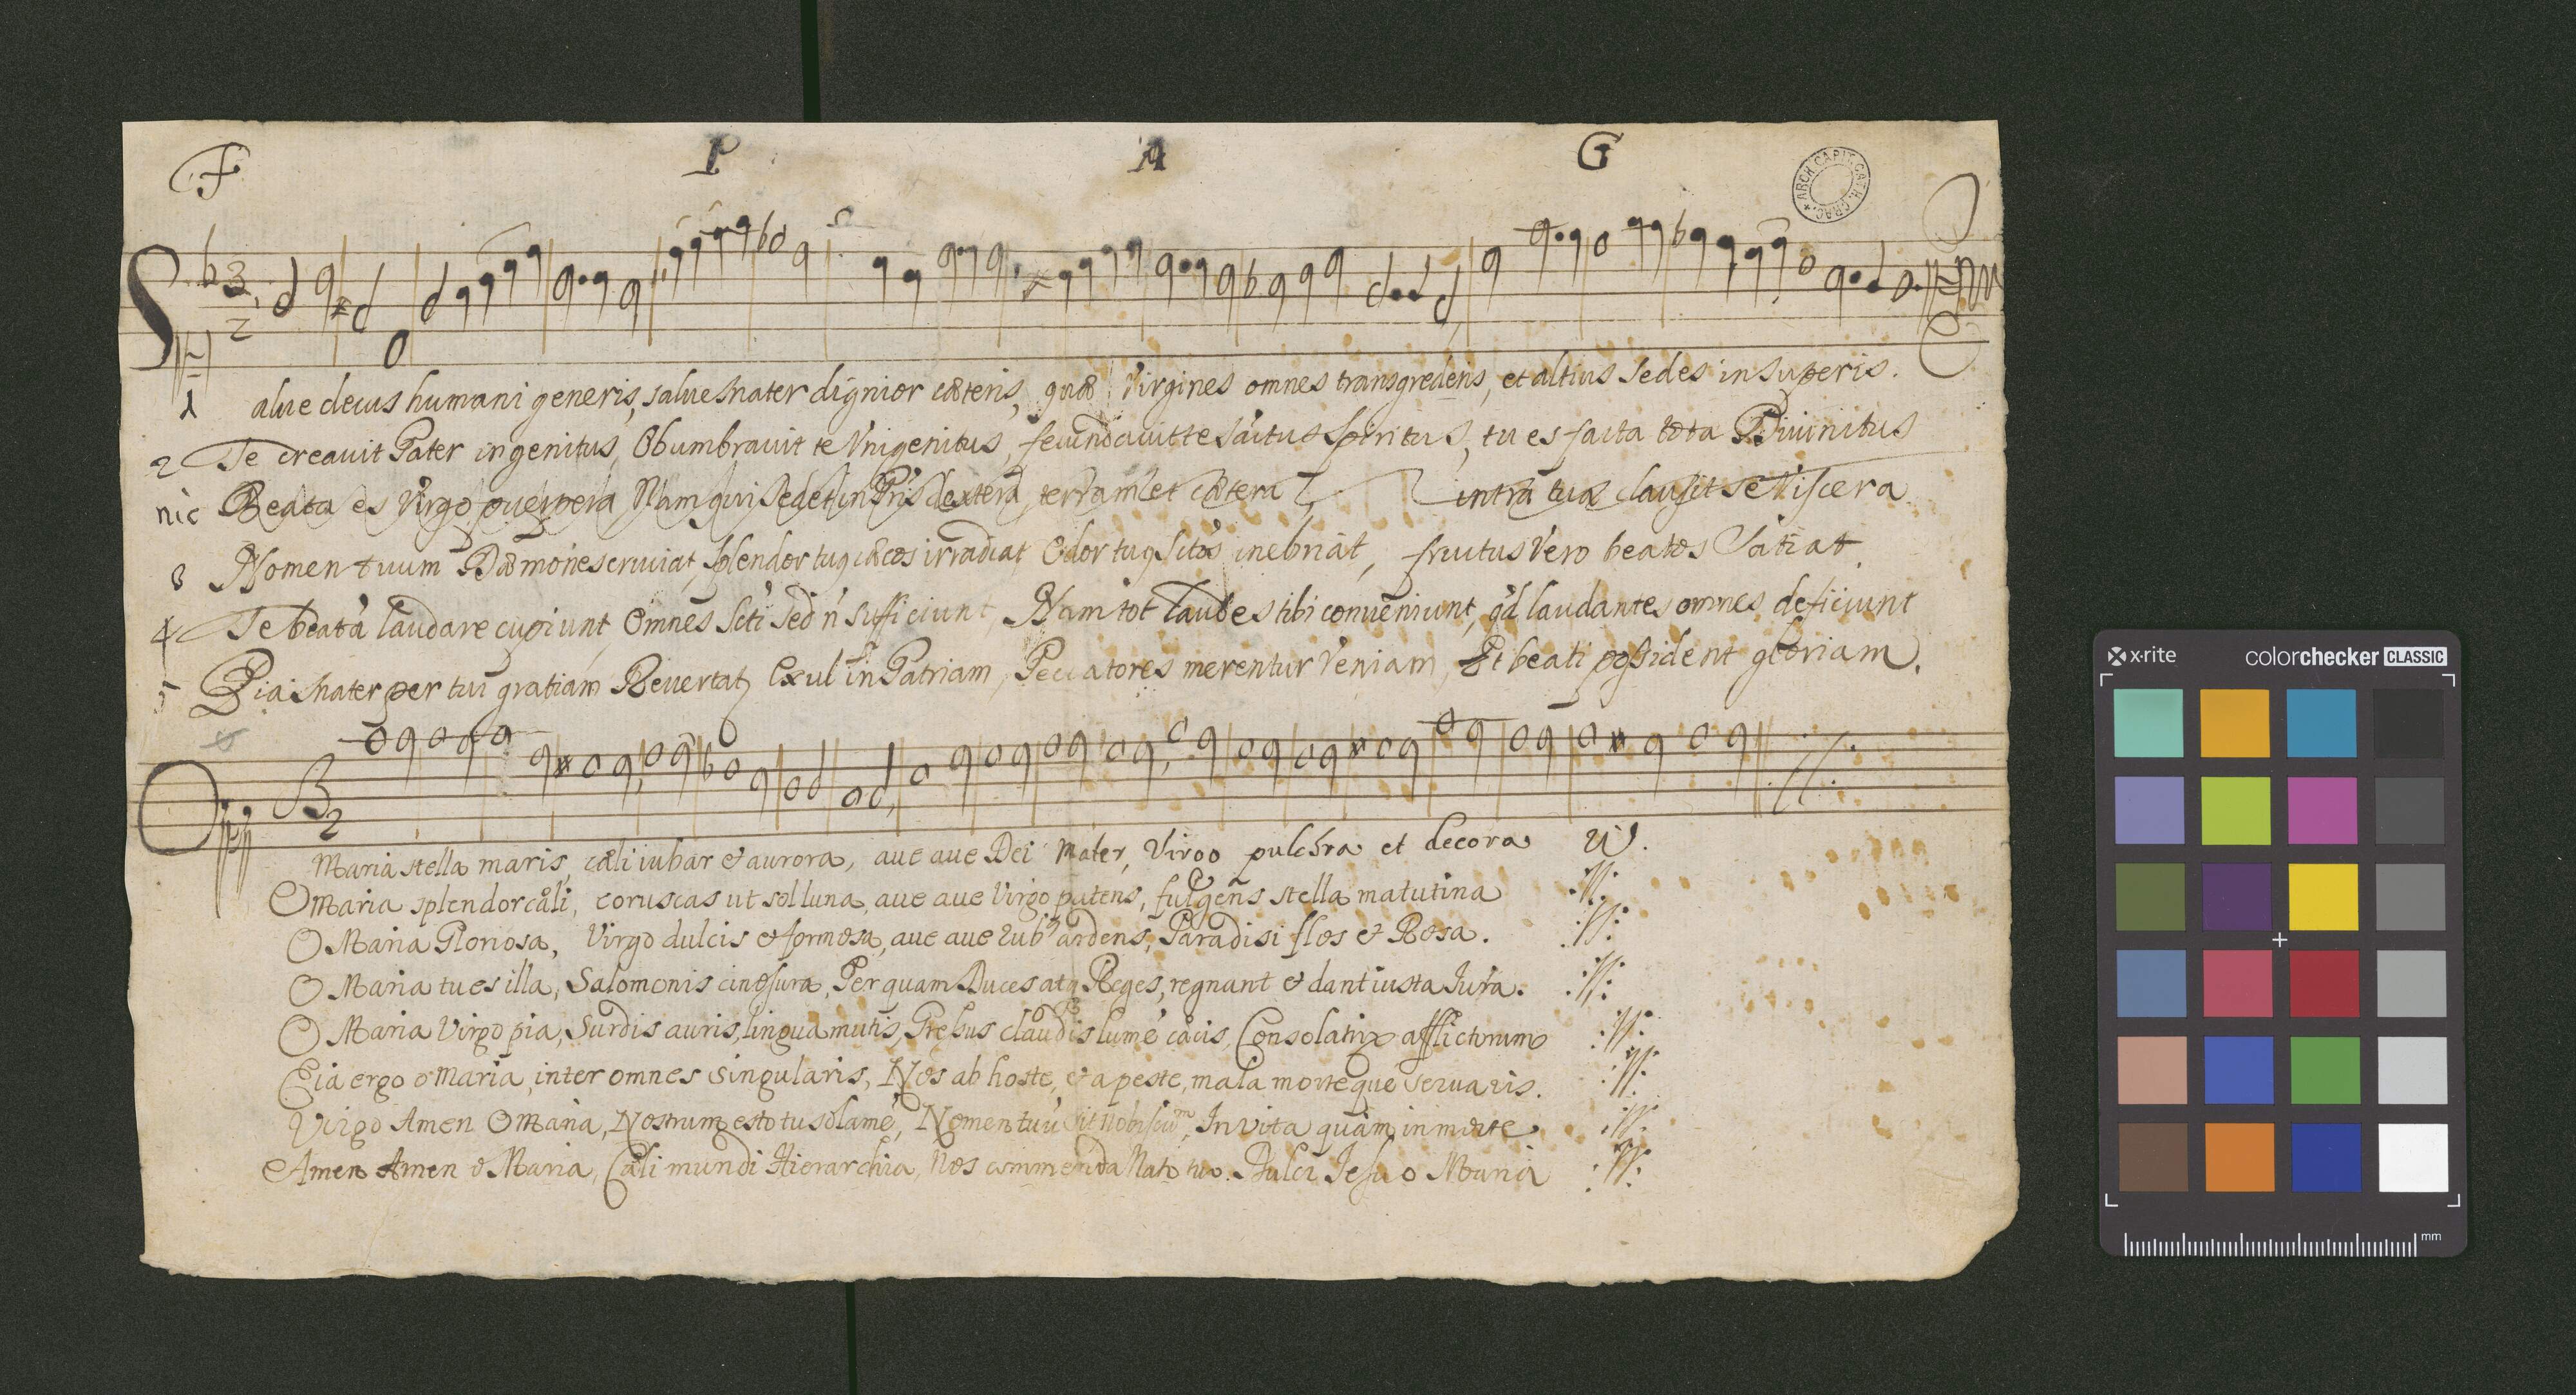 F P A G
ARCH. CAPIT. CATH. CRAC.
S
3
2
1 alue decus humani generis, salue Mater dignior cæteris, quæ Virgines omnes transgrediens, et altius Sedes in Superis.
2 Te creauit Pater ingenitus, Obumbrauit te Vnigenitus, fecundauit te Sáctus Spiritus, tu es facta tota Diuinitus
nic Beata es Virgo puerpera Nam qui Sedet in Pris dextera, terram et cætera intra tua clausit se Viscera
3 Nomen tuum Dæmones cruciat, Splendor tuus cæcos irradiat Odor tuus Sctos inebriat, fructus Vero beatos Satiat.
4 Te beatá laudare cupiunt Omnes Scti Sed ń Sufficiunt, Nam tot laudes tibi conueniunt, qd laudantes omnes deficiunt
5 Pia Mater per tuā gratiam Reuertat Exul in Patriam, Peccatores merentur Veniam, Et beati possident gloriam.
O
2
Maria stella maris, cæli iubar et aurora, aue aue Dei Mater, Virgo pulchra et decora ij.
O Maria splendor cæli, coruscas ut sol luna, aue aue Virgo putens, fulgens stella matutina
O Maria Gloriosa, Virgo dulcis et formosa, aue aue Rub9 ardens, Paradisi flos et Rosa.
O Maria tu es illa, Salomonis cinosura, Per quam Duces atq Reges, regnant et dant iusta Jura.
O Maria Virgo pia, Surdis auris, lingua mutis, Gressus claudis lumē cæcis, Consolatrix afflictorum
Eia ergo o Maria, inter omnes singularis, Nos ab hoste, et a peste, mala morteque seruaris.
Virgo Amen O Maria, Nostrum esto tu solamē, Nomen tuū sit nobiscum, In vita quam in morte
Amen Amen o Maria, Cæli mundi Hierarchia, Nos commenda Nato tuo. Dulci Jesu o Maria
x-rite colorchecker CLASSIC
mm